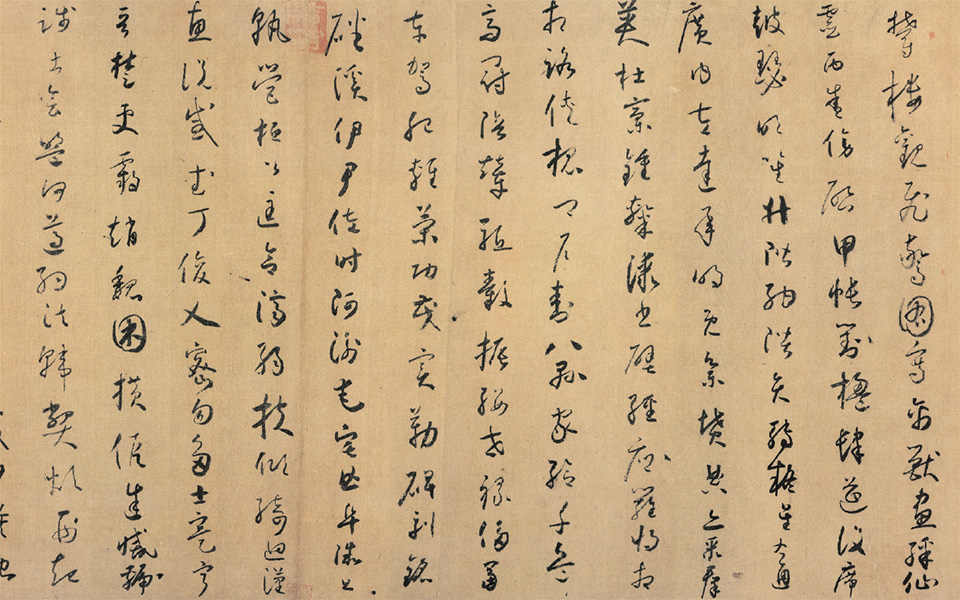 鬱樓觀飛驚圖寫禽獸畫綵仙
靈丙舍傍啟甲帳對楹肆筵設席
鼓瑟吹笙升階納陛弁轉疑星右通
廣內左達承明既集墳典亦聚群
英杜稾鍾隸漆書壁經府羅將相
相路俠槐卿戶封八縣家給千兵
高冠陪輦驅轂振纓世祿侈富
車駕肥輕策功茂實勒碑刻銘
磻溪伊尹佐時阿衡奄宅曲阜微旦
孰營桓公匡合濟弱扶傾綺迴漢
惠說感武丁俊乂密勿多士寔寧
晉楚更霸趙魏困橫假途滅虢
踐土會盟何遵約法韓弊煩刑起